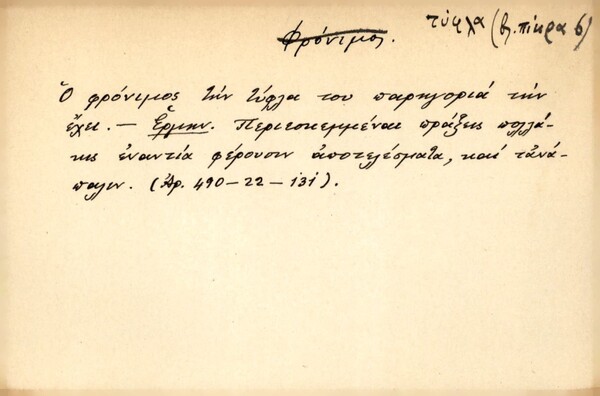 Φρόνιμος. τύφλα (βλ. πίκρα 6)
Ὁ φρόνιμος τὴν τύφλα του παρηγοριά τὴν
ἔχει. — Ἑρμην. Περιεσκεμμέναι πράξεις πολλά-
κις ἐναντία φέρουσιν ἀποτελέσματα, καὶ τἀνά-
παλιν. (Ἀρ. 490 – 22 – 131).